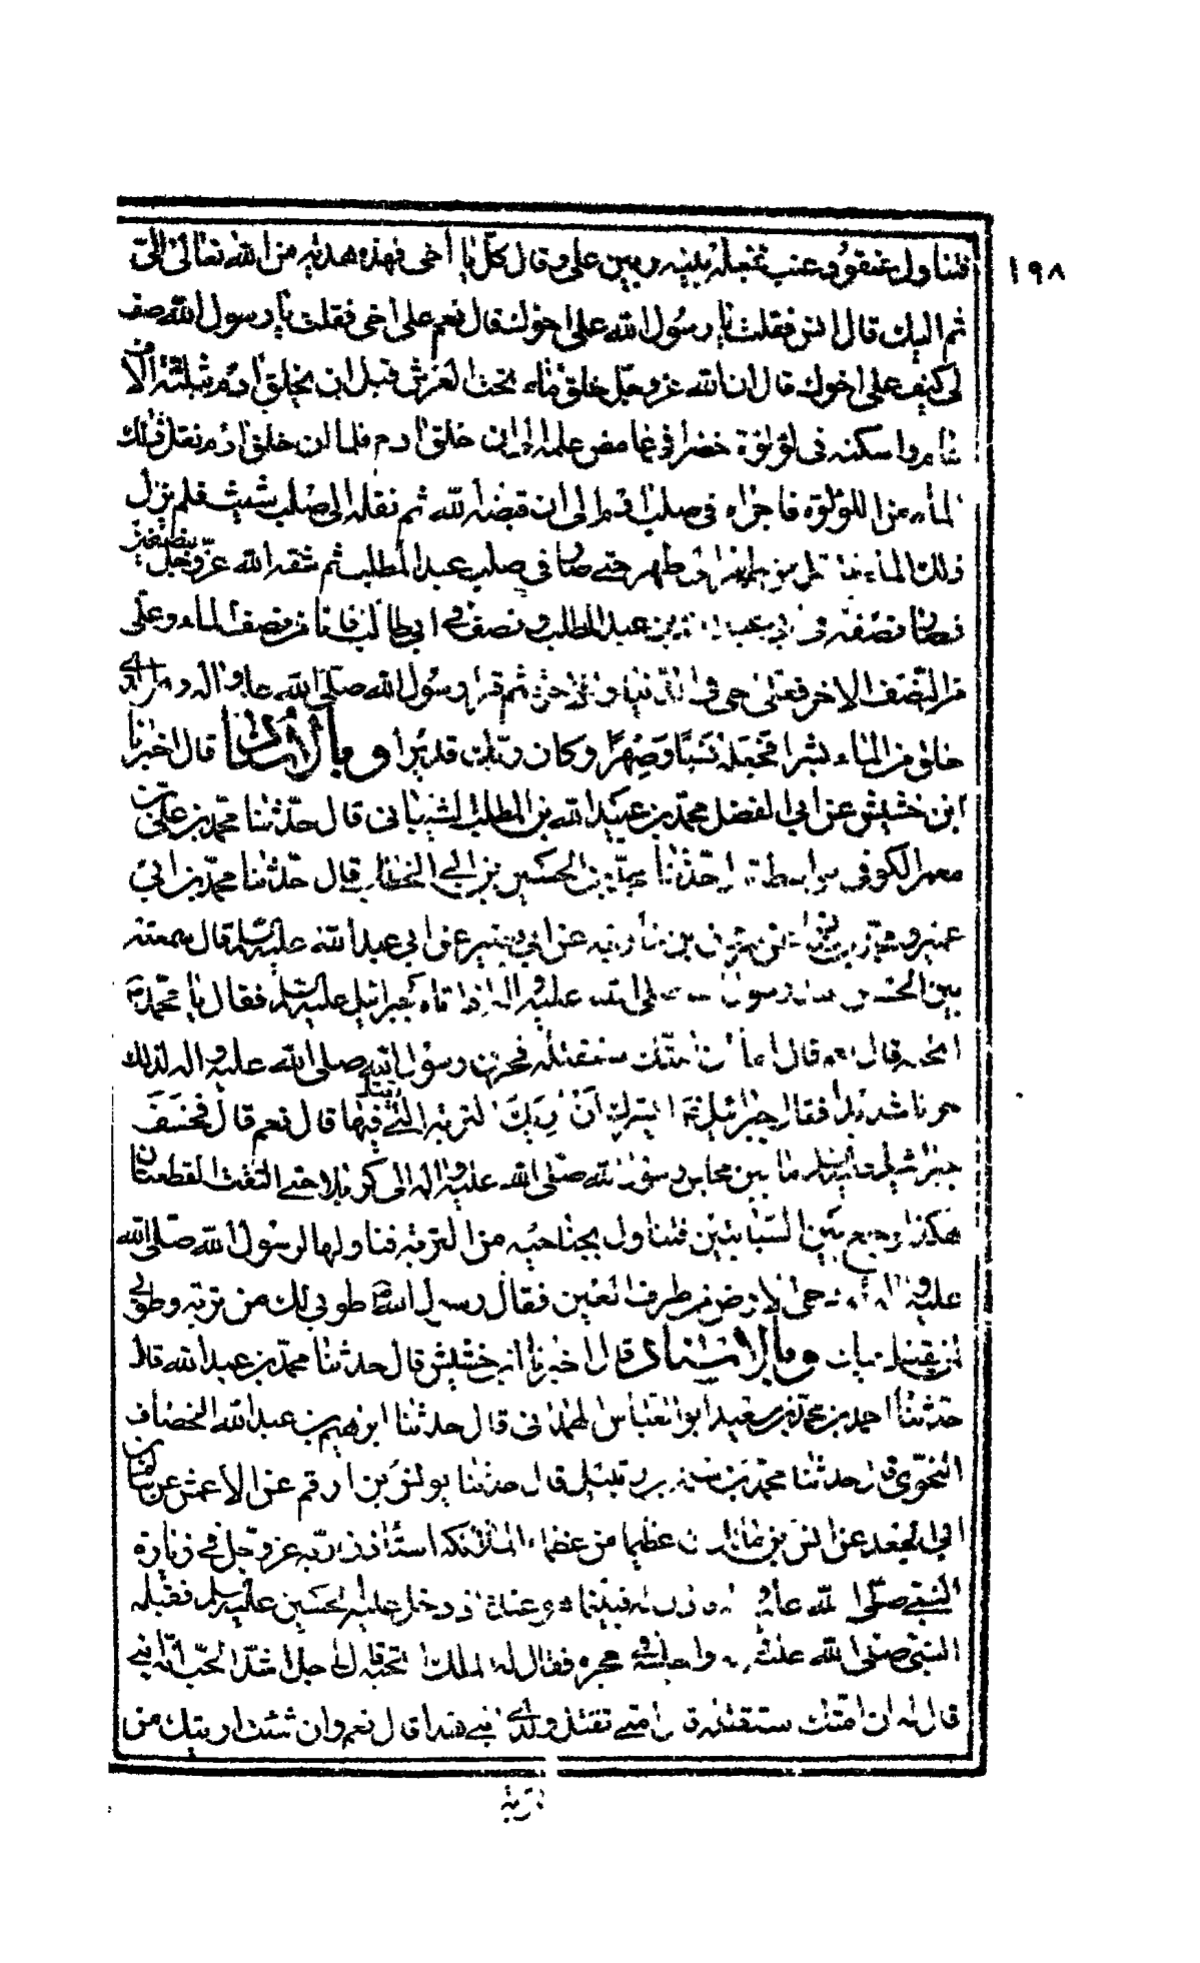 ١٩٨
فتناول عنقود عنب فجعله بينه وبين علي وقال كل يا أخي فهذه هدية من الله تعالى الي
ثم اليك قال انس فقلت يا رسول الله علي اخوك قال نعم علي اخي فقلت يا رسول الله صف
لي كيف علي اخوك قال ان الله عز وجل خلق ماء تحت العرش قبل ان يخلق ادم بثلثة الآف
عام واسكنه في لؤلؤة خضرا في غامض علمه الى ان خلق ادم فلما ان خلق ادم نقل ذلك
الماء من اللؤلؤة فاجراه في صلب ادم الى ان قبضه الله ثم نقله الى صلب شيث فلم يزل
ذلك الماء ينتقل من ظهر الى ظهر حتى صار في صلب عبد المطلب ثم شقه الله عز وجل بنصفين
فصار نصفه في ابي عبد الله بن عبد المطلب ونصف في ابي طالب فانا من نصف الماء وعلي
من النصف الاخر فعلي اخي في الدنيا والاخرة ثم قرا رسول الله صلى الله عليه واله وهو الذي
خلق من الماء بشرا فجعله نسبا وصهرا وكان ربك قديرا وبالاسناد قال اخبرنا
ابن خشيش عن ابي المفضل محمد بن عبيد الله بن المطلب الشيباني قال حدثنا محمد بن علي بن
معمر الكوفي بواسط قال حدثنا محمد بن الحسين بن ابي الخطاب قال حدثنا محمد بن ابي
عمير عن ابي بصير عن ابي عبد الله عليه السلم قال سمعته
بين الحسين عند رسول الله صلى الله عليه واله اذ اتاه جبرائيل عليه السلم فقال يا محمد
اتحبه قال نعم قال اما ان امتك ستقتله فحزن رسول الله صلى الله عليه واله لذلك
حزنا شديدا فقال جبرئيل ايسرك ان اريك التربة التي يقتل فيها قال نعم قال فخسف
جبرئيل عليه السلم ما بين مجلس رسول الله صلى الله عليه واله الى كربلا حتى التقت القطعتان
هكذا وجمع بين السبابتين فتناول بجناحيه من التربة فناولها لرسول الله صلى الله
عليه واله ثم دحى الارض من طرف العين فقال رسول الله طوبى لك من تربة وطوبى
لمن يقتل فيك وبالاسناد قال اخبرنا ابن خشيش قال حدثنا محمد بن عبد الله قال
حدثنا احمد بن محمد بن سعيد ابو العباس الهمداني قال حدثنا ابرهيم بن عبد الله الخصاف
النحوي قال حدثنا محمد بن سلمة بن ارتبيل قال حدثنا يونس بن ارقم عن الاعمش عن سالم بن
ابي الجعد عن انس بن مالك ان عظيما من عظماء الملائكة استأذن ربه عز وجل في زيارة
النبي صلى الله عليه واله فاذن له فبينما هو عنده اذ دخل عليه الحسين عليه السلم فقبله
النبي صلى الله عليه واله واجلسه في حجره فقال له الملك اتحبه قال اجل اشد الحب انه ابني
قال له ان امتك ستقتله قال امتي تقتل ولدي ابني هذا قال نعم وان شئت اريتك من
تربة